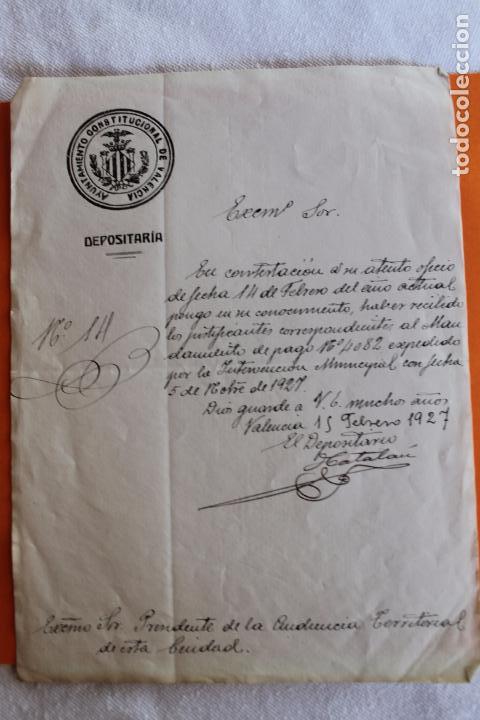 AYUNTAMIENTO CONSTITUCIONAL DE VALENCIA
DEPOSITARÍA
Excmº Sor.
Nº 14
En contestación á su atento oficio
de fecha 14 de Febrero del año actual
pongo en su conocimiento, haber recibido
los justificantes correspondientes al Man
damiento de pago Nº 4082 expedido
por la Intervención Municipal con fecha
5 de Nobre de 1927.
Dios guarde a V. E. muchos años
Valencia 15 Febrero 1927
El Depositario
Excmo Sor Presidente de la Audiencia Territorial
de esta Ciudad.
todocoleccion